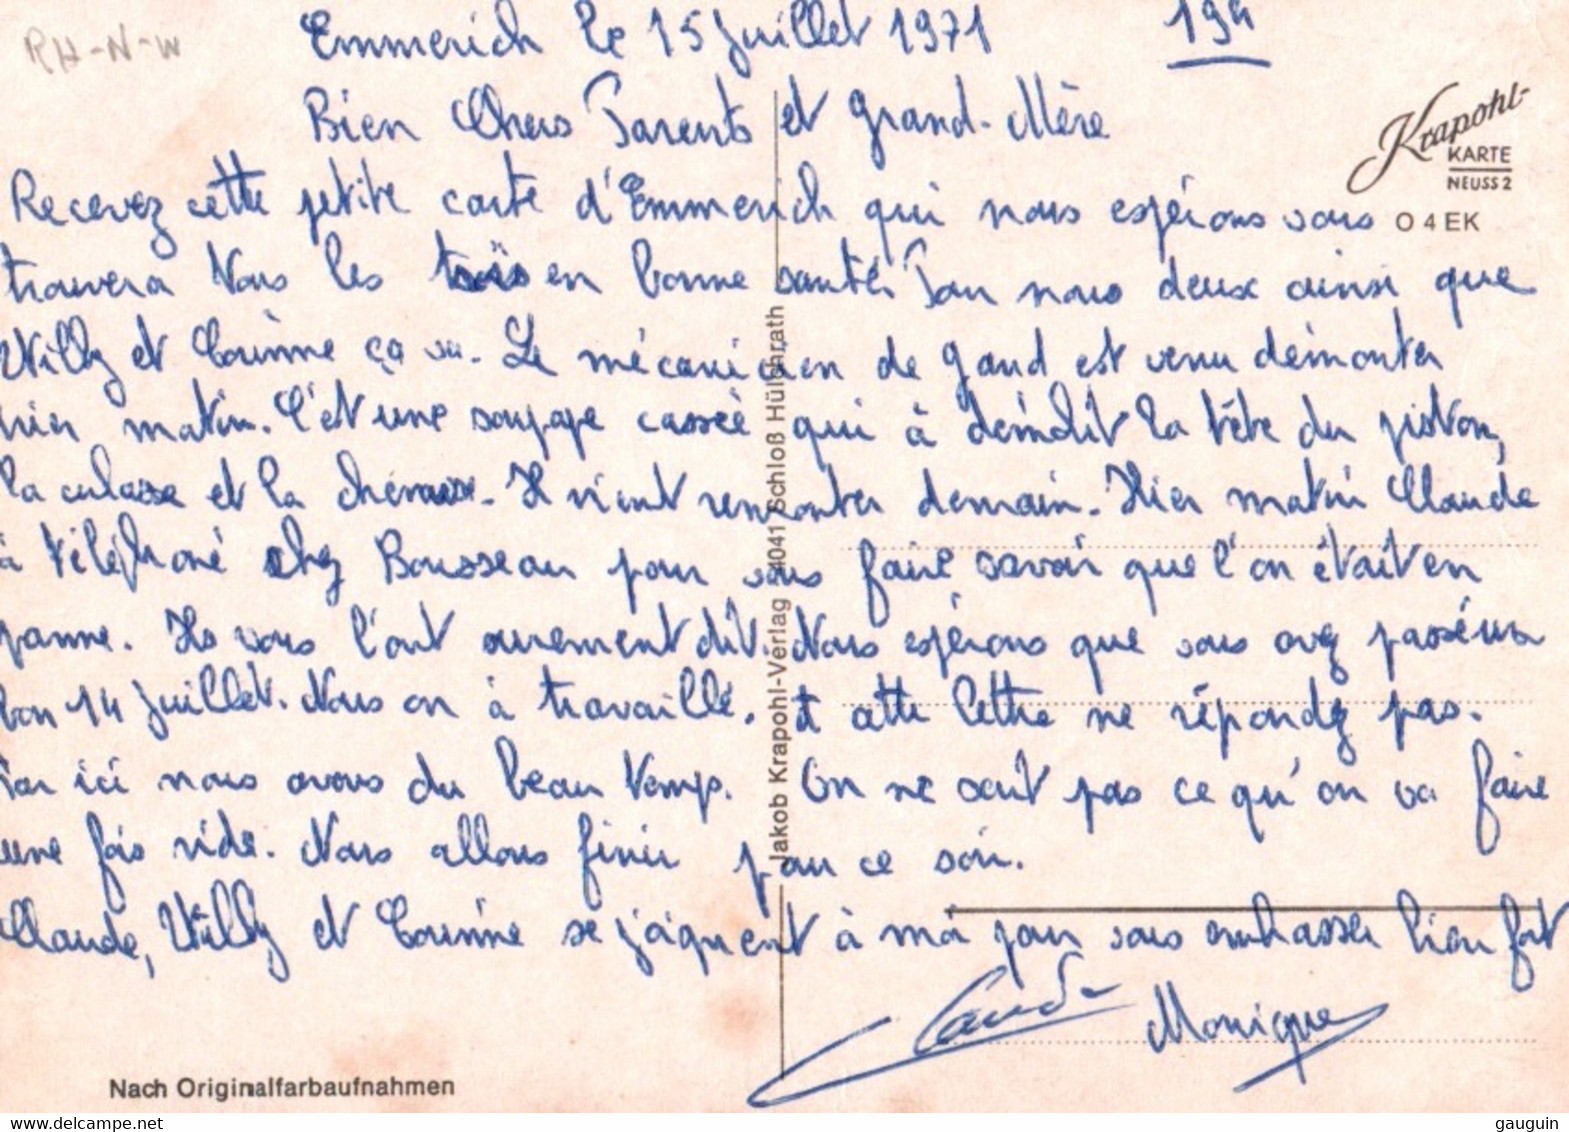 RH-N-W
Emmerich le 15 Juillet 1971
194
Bien Chers Parents et Grand-Mère
Krapohl-
KARTE
NEUSS 2
O 4 EK
Recevez cette petite carte d'Emmerich qui nous espérons vous
trouvera Vous les trois en bonne santé. Pour nous deux ainsi que
Willy et Corinne ça va. Le mécanicien de Gand est venu démonter
hier matin. C'est une soupape cassée qui à démolit la tête du piston,
la culasse et la chemise. Il vient remonter demain. Hier matin Claude
à téléphoné chez Bousseau pour vous faire savoir que l'on était en
panne. Ils vous l'ont surement dit. Nous espérons que vous avez passé un
bon 14 Juillet. Nous on à travaillé. à cette lettre ne répondez pas.
Car ici nous avons du beau temps. On ne sait pas ce qu'on va faire
une fois vide. Nous allons finir pour ce soir.
Claude, Willy et Corinne se joignent à moi pour vous embrasser bien fort
Claude Monique
Jakob Krapohl-Verlag 4041 Schloß Hülchrath
Nach Originalfarbaufnahmen
www.delcampe.net
gauguin